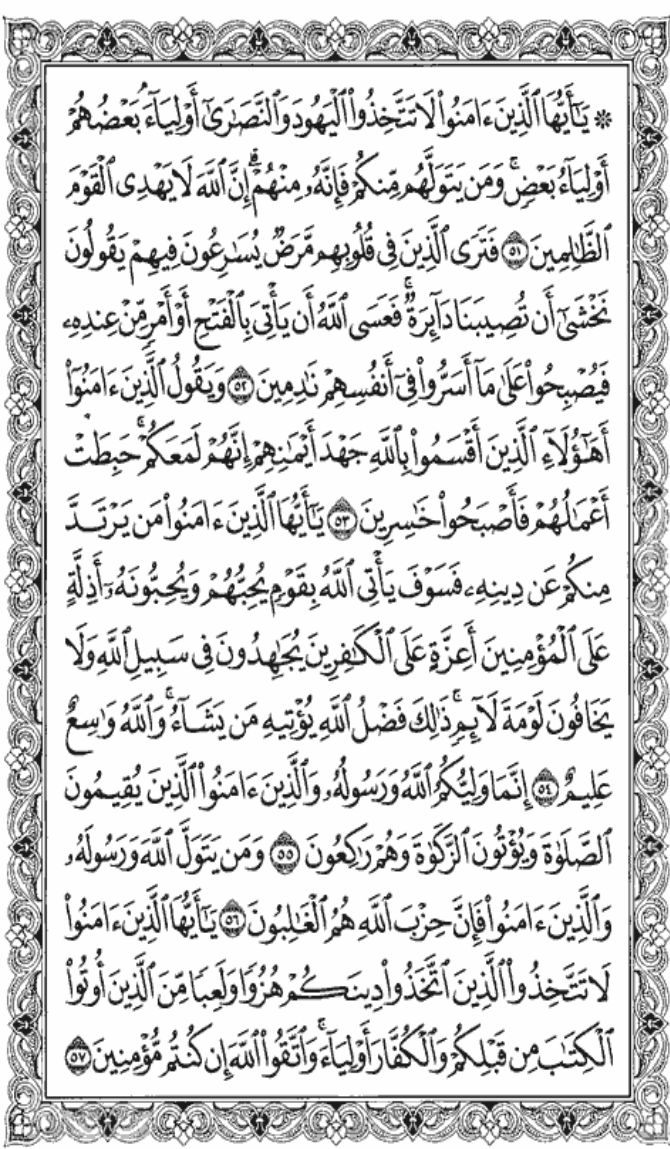 ۞ يَٰٓأَيُّهَا ٱلَّذِينَ ءَامَنُوا۟ لَا تَتَّخِذُوا۟ ٱلْيَهُودَ وَٱلنَّصَٰرَىٰٓ أَوْلِيَآءَ ۘ بَعْضُهُمْ
أَوْلِيَآءُ بَعْضٍ ۚ وَمَن يَتَوَلَّهُم مِّنكُمْ فَإِنَّهُۥ مِنْهُمْ ۗ إِنَّ ٱللَّهَ لَا يَهْدِى ٱلْقَوْمَ
ٱلظَّٰلِمِينَ ٥١ فَتَرَى ٱلَّذِينَ فِى قُلُوبِهِم مَّرَضٌ يُسَٰرِعُونَ فِيهِمْ يَقُولُونَ
نَخْشَىٰٓ أَن تُصِيبَنَا دَآئِرَةٌ ۚ فَعَسَى ٱللَّهُ أَن يَأْتِىَ بِٱلْفَتْحِ أَوْ أَمْرٍ مِّنْ عِندِهِۦ
فَيُصْبِحُوا۟ عَلَىٰ مَآ أَسَرُّوا۟ فِىٓ أَنفُسِهِمْ نَٰدِمِينَ ٥٢ وَيَقُولُ ٱلَّذِينَ ءَامَنُوٓا۟
أَهَٰٓؤُلَآءِ ٱلَّذِينَ أَقْسَمُوا۟ بِٱللَّهِ جَهْدَ أَيْمَٰنِهِمْ إِنَّهُمْ لَمَعَكُمْ ۚ حَبِطَتْ
أَعْمَٰلُهُمْ فَأَصْبَحُوا۟ خَٰسِرِينَ ٥٣ يَٰٓأَيُّهَا ٱلَّذِينَ ءَامَنُوا۟ مَن يَرْتَدَّ
مِنكُمْ عَن دِينِهِۦ فَسَوْفَ يَأْتِى ٱللَّهُ بِقَوْمٍ يُحِبُّهُمْ وَيُحِبُّونَهُۥٓ أَذِلَّةٍ
عَلَى ٱلْمُؤْمِنِينَ أَعِزَّةٍ عَلَى ٱلْكَٰفِرِينَ يُجَٰهِدُونَ فِى سَبِيلِ ٱللَّهِ وَلَا
يَخَافُونَ لَوْمَةَ لَآئِمٍ ۚ ذَٰلِكَ فَضْلُ ٱللَّهِ يُؤْتِيهِ مَن يَشَآءُ ۚ وَٱللَّهُ وَٰسِعٌ
عَلِيمٌ ٥٤ إِنَّمَا وَلِيُّكُمُ ٱللَّهُ وَرَسُولُهُۥ وَٱلَّذِينَ ءَامَنُوا۟ ٱلَّذِينَ يُقِيمُونَ
ٱلصَّلَوٰةَ وَيُؤْتُونَ ٱلزَّكَوٰةَ وَهُمْ رَٰكِعُونَ ٥٥ وَمَن يَتَوَلَّ ٱللَّهَ وَرَسُولَهُۥ
وَٱلَّذِينَ ءَامَنُوا۟ فَإِنَّ حِزْبَ ٱللَّهِ هُمُ ٱلْغَٰلِبُونَ ٥٦ يَٰٓأَيُّهَا ٱلَّذِينَ ءَامَنُوا۟
لَا تَتَّخِذُوا۟ ٱلَّذِينَ ٱتَّخَذُوا۟ دِينَكُمْ هُزُوًا وَلَعِبًا مِّنَ ٱلَّذِينَ أُوتُوا۟
ٱلْكِتَٰبَ مِن قَبْلِكُمْ وَٱلْكُفَّارَ أَوْلِيَآءَ ۚ وَٱتَّقُوا۟ ٱللَّهَ إِن كُنتُم مُّؤْمِنِينَ ٥٧